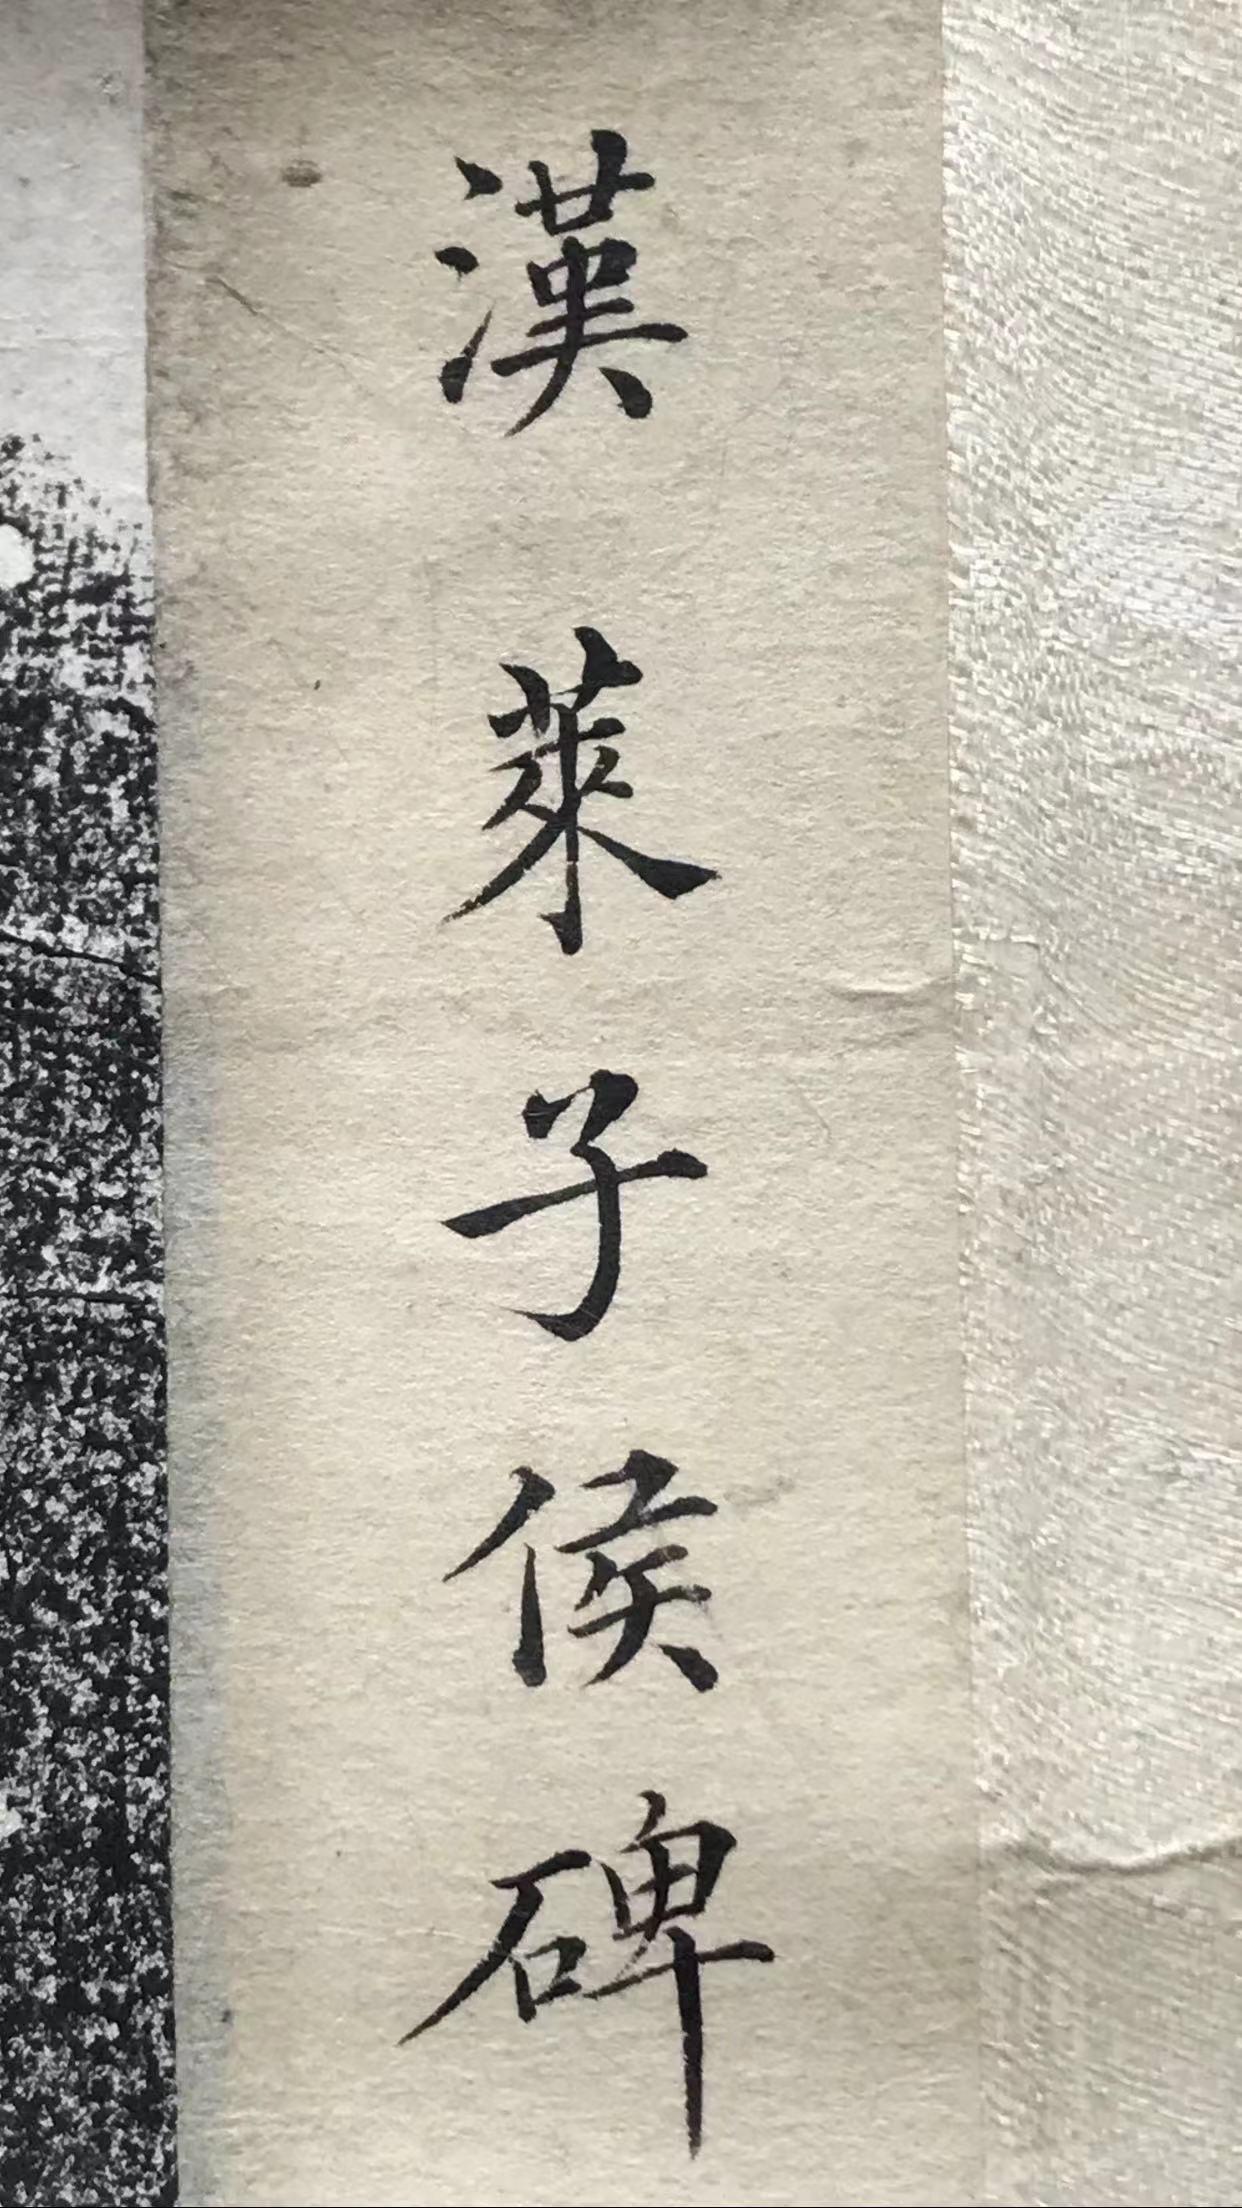 漢萊子侯碑